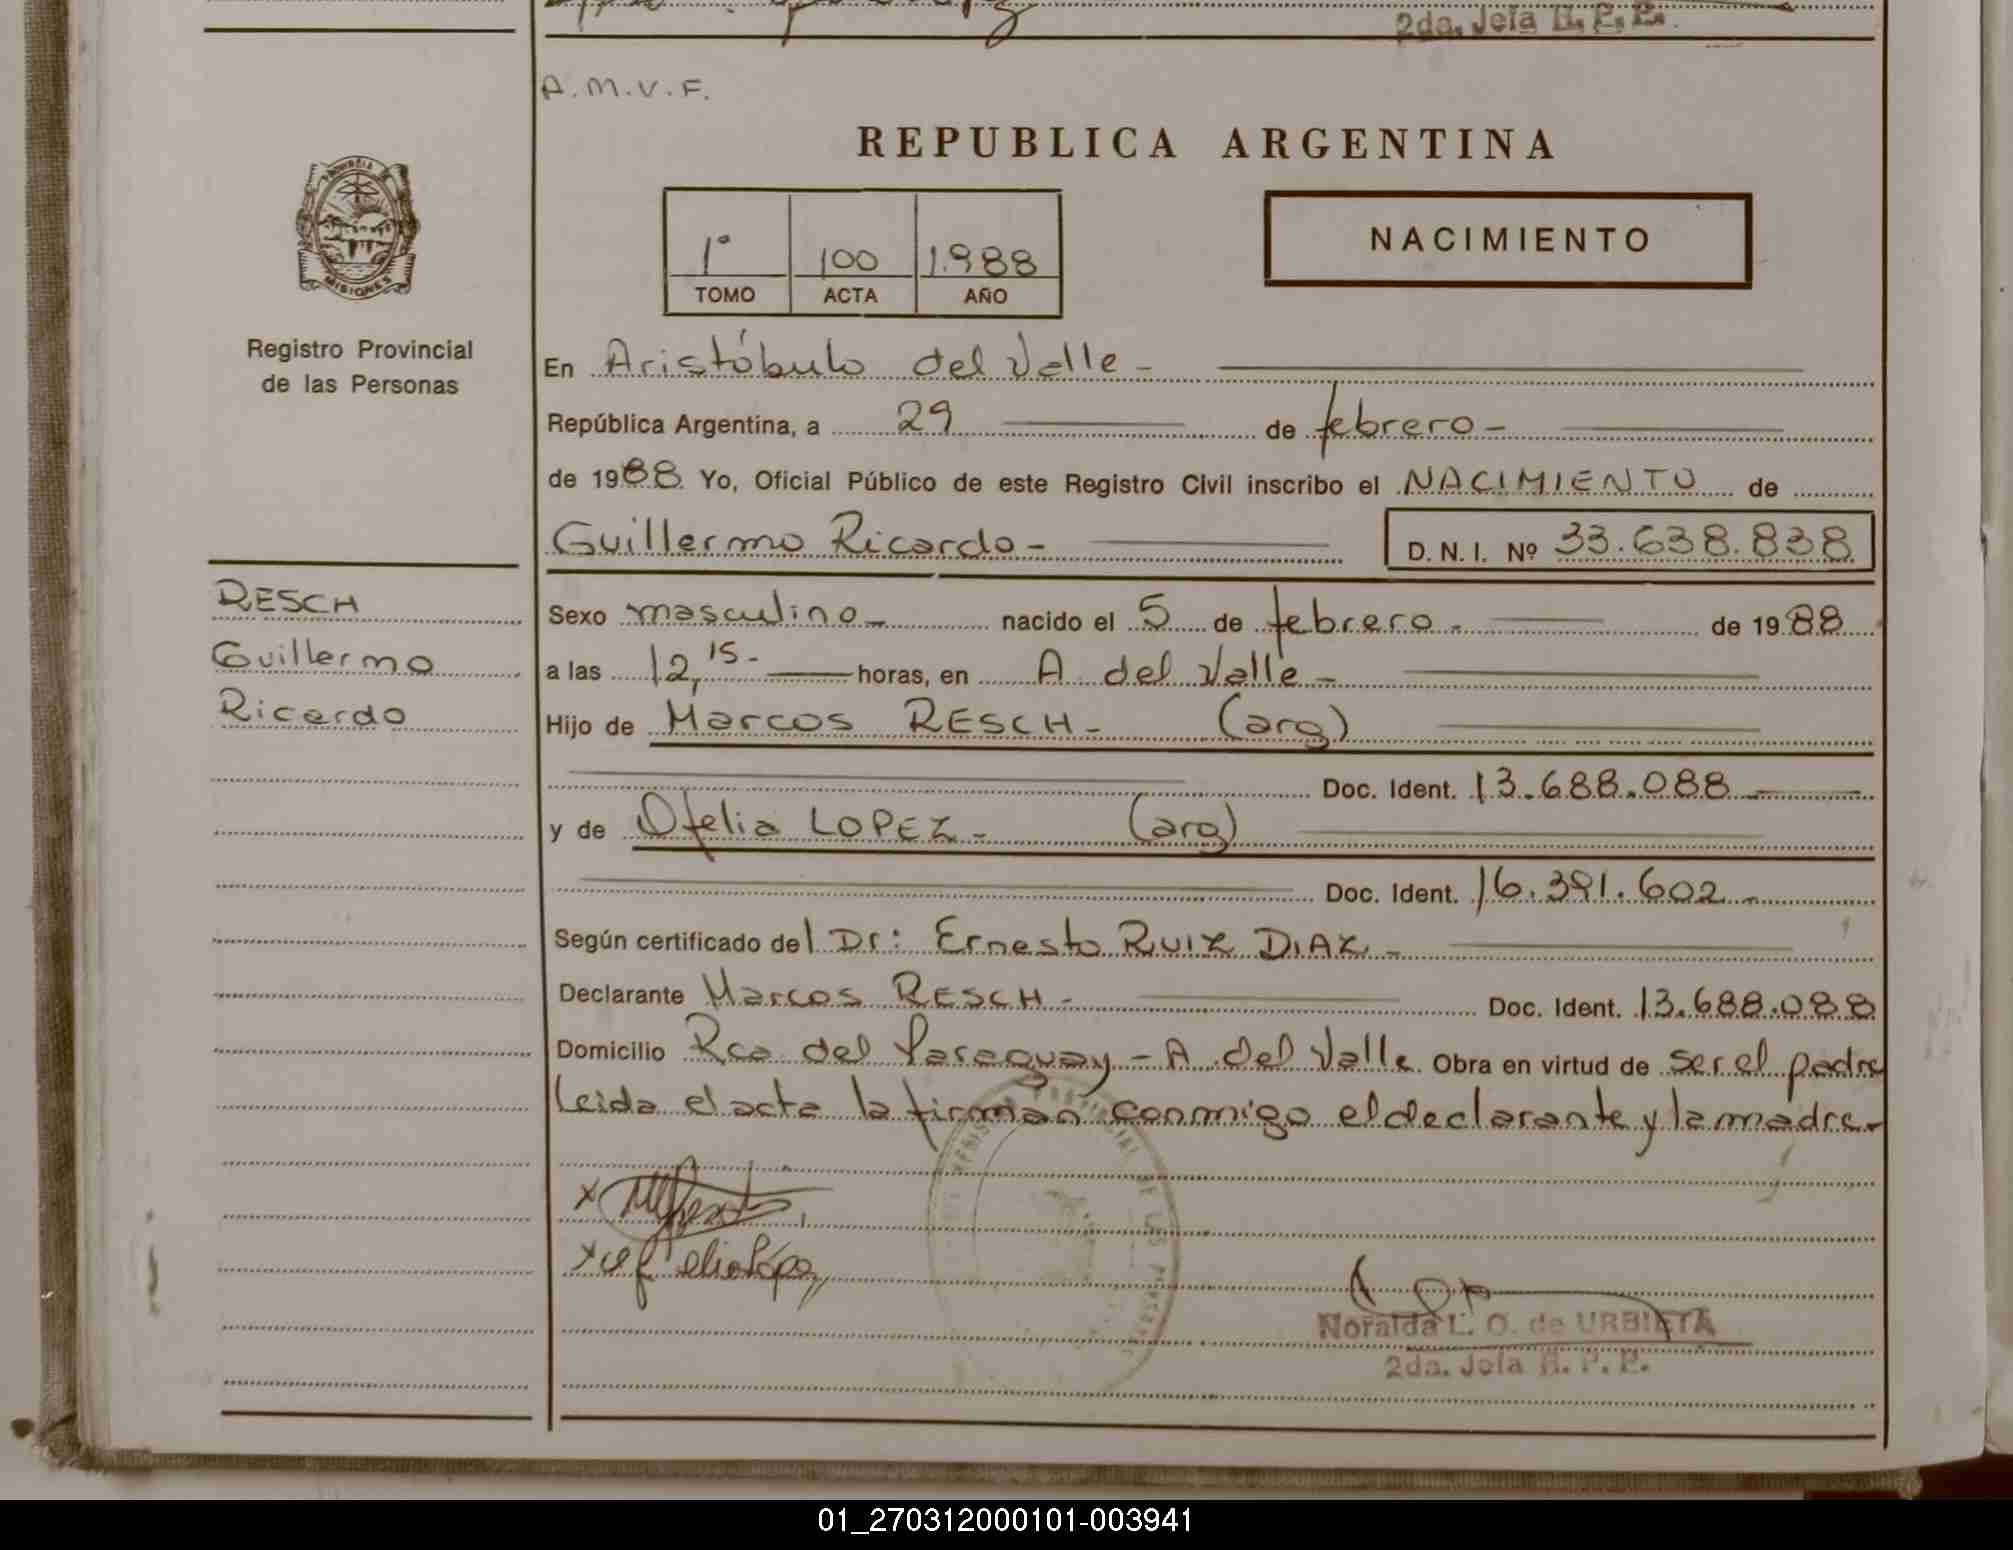 2da. Jefa R. P. P.
A.M.V.F.
REPUBLICA ARGENTINA
PROVINCIA DE MISIONES
1º 100 1.988
TOMO ACTA AÑO
NACIMIENTO
Registro Provincial
de las Personas
En Aristóbulo del Valle -
República Argentina, a 29 de febrero -
de 1988 Yo, Oficial Público de este Registro Civil inscribo el NACIMIENTO de
Guillermo Ricardo - D. N. I. Nº 33.638.838
RESCH
Guillermo
Ricardo
Sexo masculino - nacido el 5 de febrero - de 1988
a las 12,15- horas, en A. del Valle -
Hijo de Marcos RESCH - (arg)
Doc. Ident. 13.688.088
y de Ofelia LOPEZ - (arg)
Doc. Ident. 16.391.602 -
Según certificado del Dr: Ernesto RUIZ DIAZ -
Declarante Marcos RESCH - Doc. Ident. 13.688.088
Domicilio Rca del Paraguay - A. del Valle Obra en virtud de ser el padre
leida el acta la firman conmigo el declarante y la madre -
x
x Ofelia López
REGISTRO PROVINCIAL DE LAS PERSONAS
Noralda L. O. de URBIETA
2da. Jefa R. P. P.
01_270312000101-003941